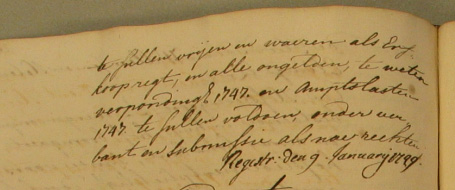 te sullen vrijen en waeren als Erf
koopregt, en alle ongelden, te weten
verponding 1747. en Amptslasten
1747. te sullen voldoen, onder ver
bant en submissie als nae rechten
Registr: den 9. January 1749.